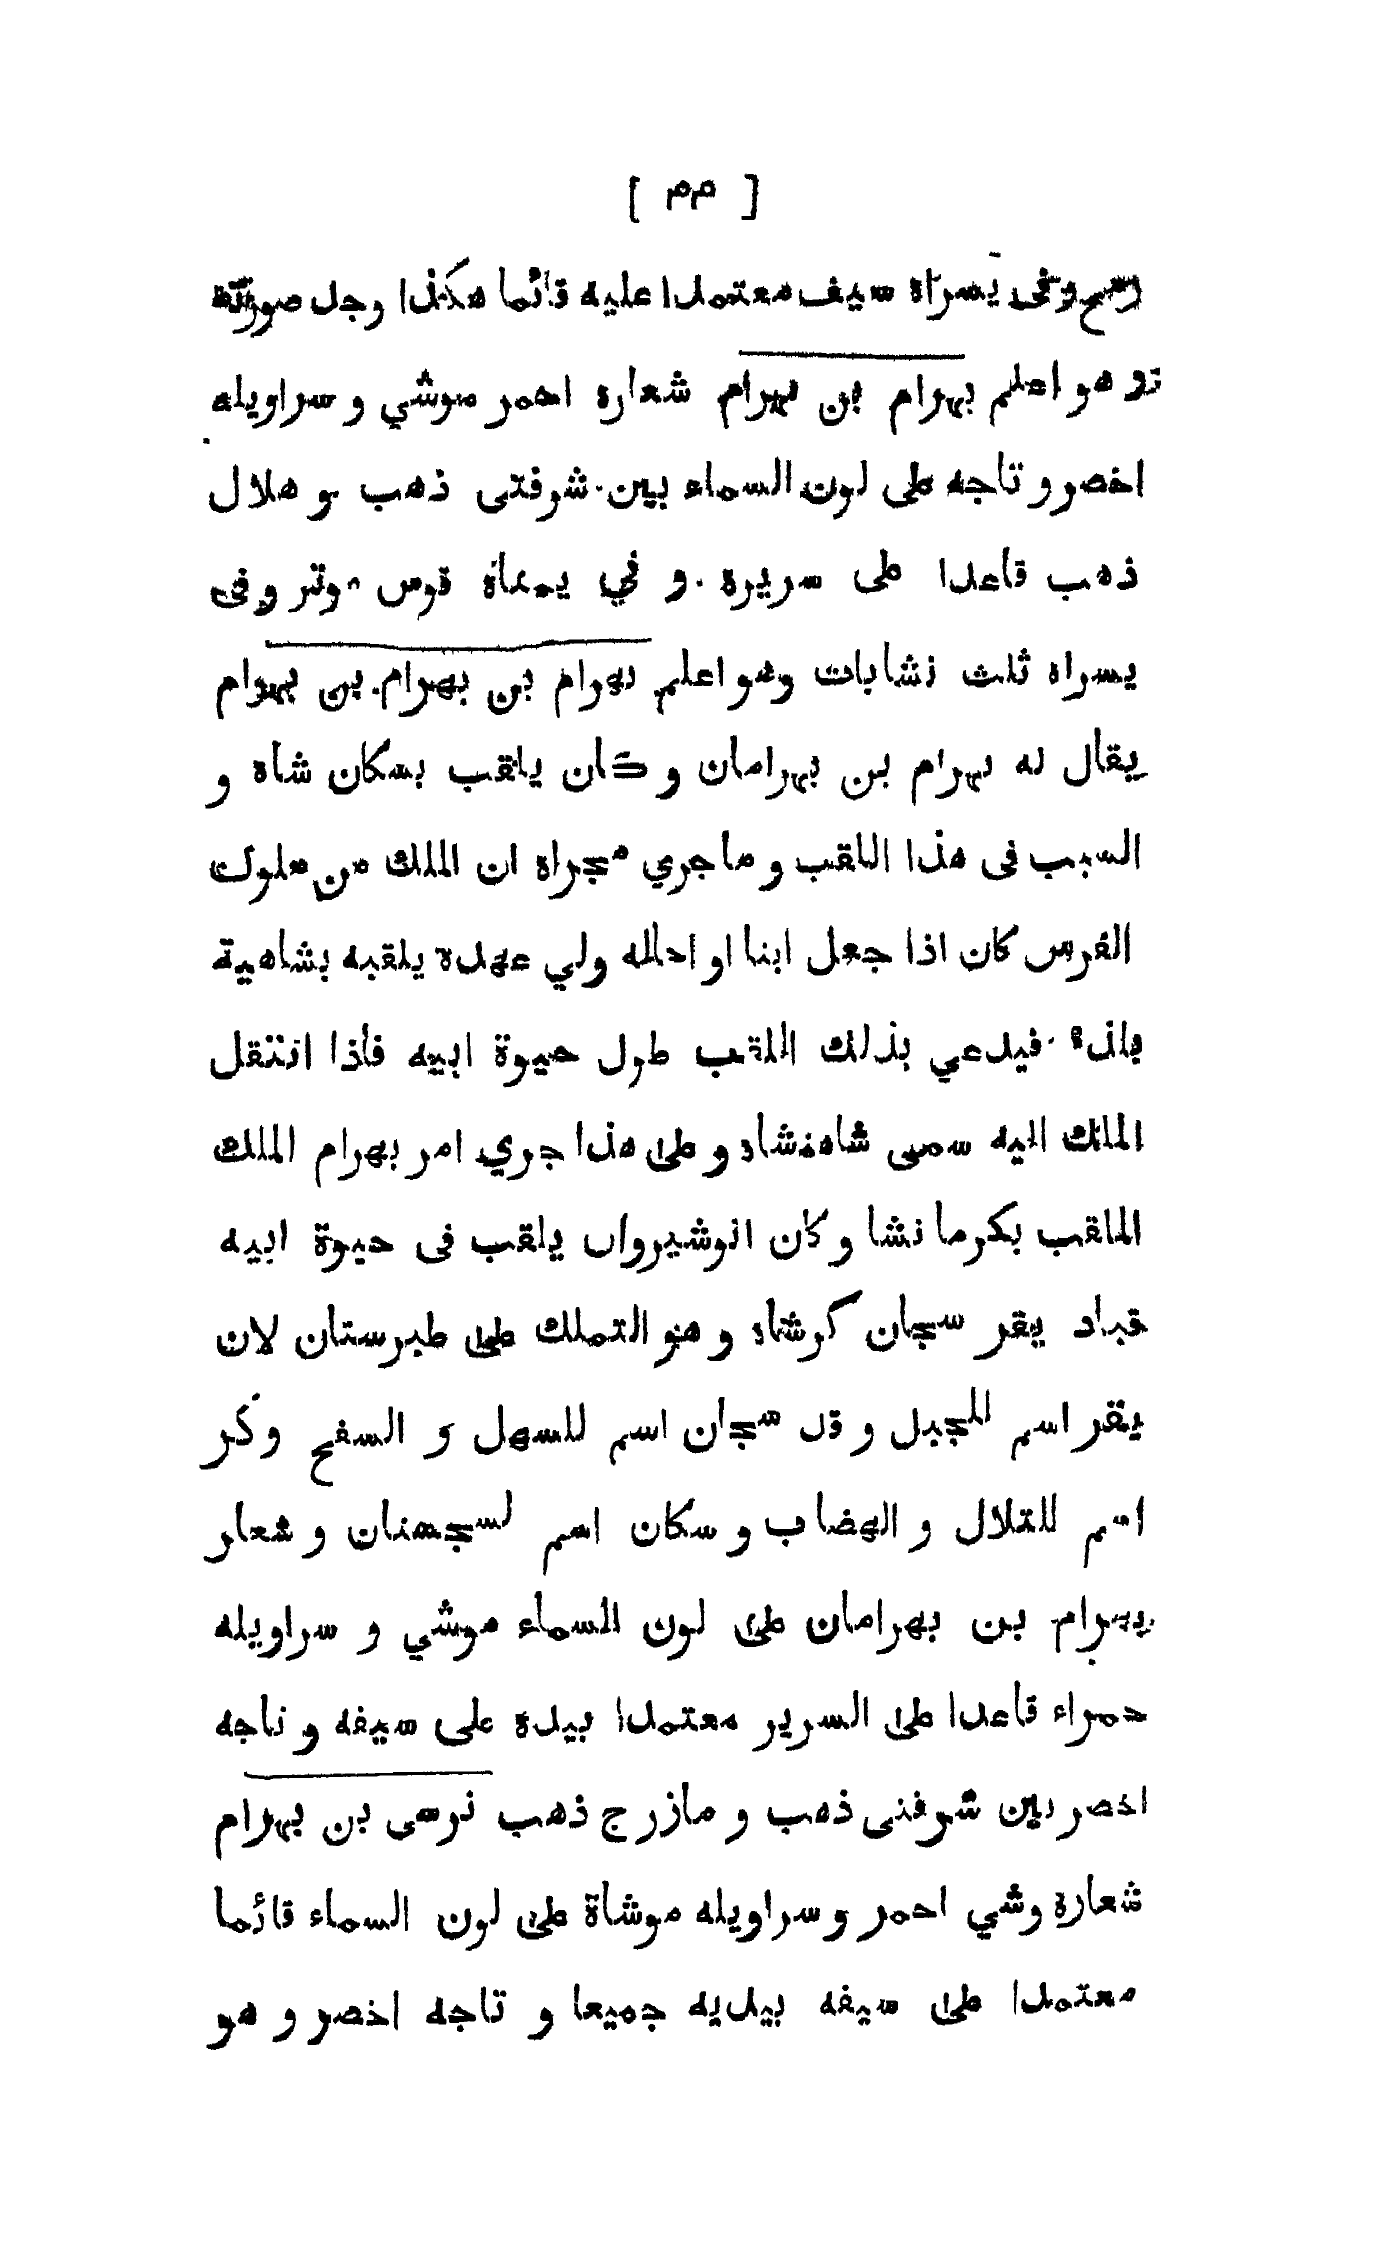 [ ٣٣ ]
رمح وفى يسراه سيف معتمدا عليه قائما هكذا وجل صورته
و هو اعلم بهرام بن بهرام شعاره احمر موشي و سراويله
اخصر و تاجه على لون السماء بين شرفتى ذهب و هلال
ذهب قاعدا على سريره و في يمناه قوس موتر وفى
يسراه ثلث نشابات وهو اعلم بهرام بن بهرام بن بهرام
يقال له بهرام بن بهرامان و كان يلقب بسكان شاه و
السبب فى هذا اللقب و ما جري مجراه ان الملك من ملوك
الفرس كان اذا جعل ابنا او احاله ولي عهده يلقبه بشاهية
بلده فيدعي بذلك اللقب طول حيوة ابيه فاذا انتقل
الملك اليه سمى شاهنشاه و على هذا جري امر بهرام الملك
الملقب بكرما نشا و كان انوشيروان يلقب فى حيوة ابيه
قباد يقر سجان كرشاه و هو التملك على طبرستان لان
يقر اسم للجبل و قد سجان اسم للسهل و السفح وكر
اسم للتلال و الهضاب و سكان اسم لسجهنان و شعار
بهرام بن بهرامان على لون السماء موشي و سراويله
حمراء قاعدا على السرير معتمدا بيده على سيفه و تاجه
اخصر بين شرفتى ذهب و مازرج ذهب نرسى بن بهرام
شعاره وشي احمر و سراويله موشاة على لون السماء قائما
معتمدا على سيفه بيديه جميعا و تاجه اخصر و هو